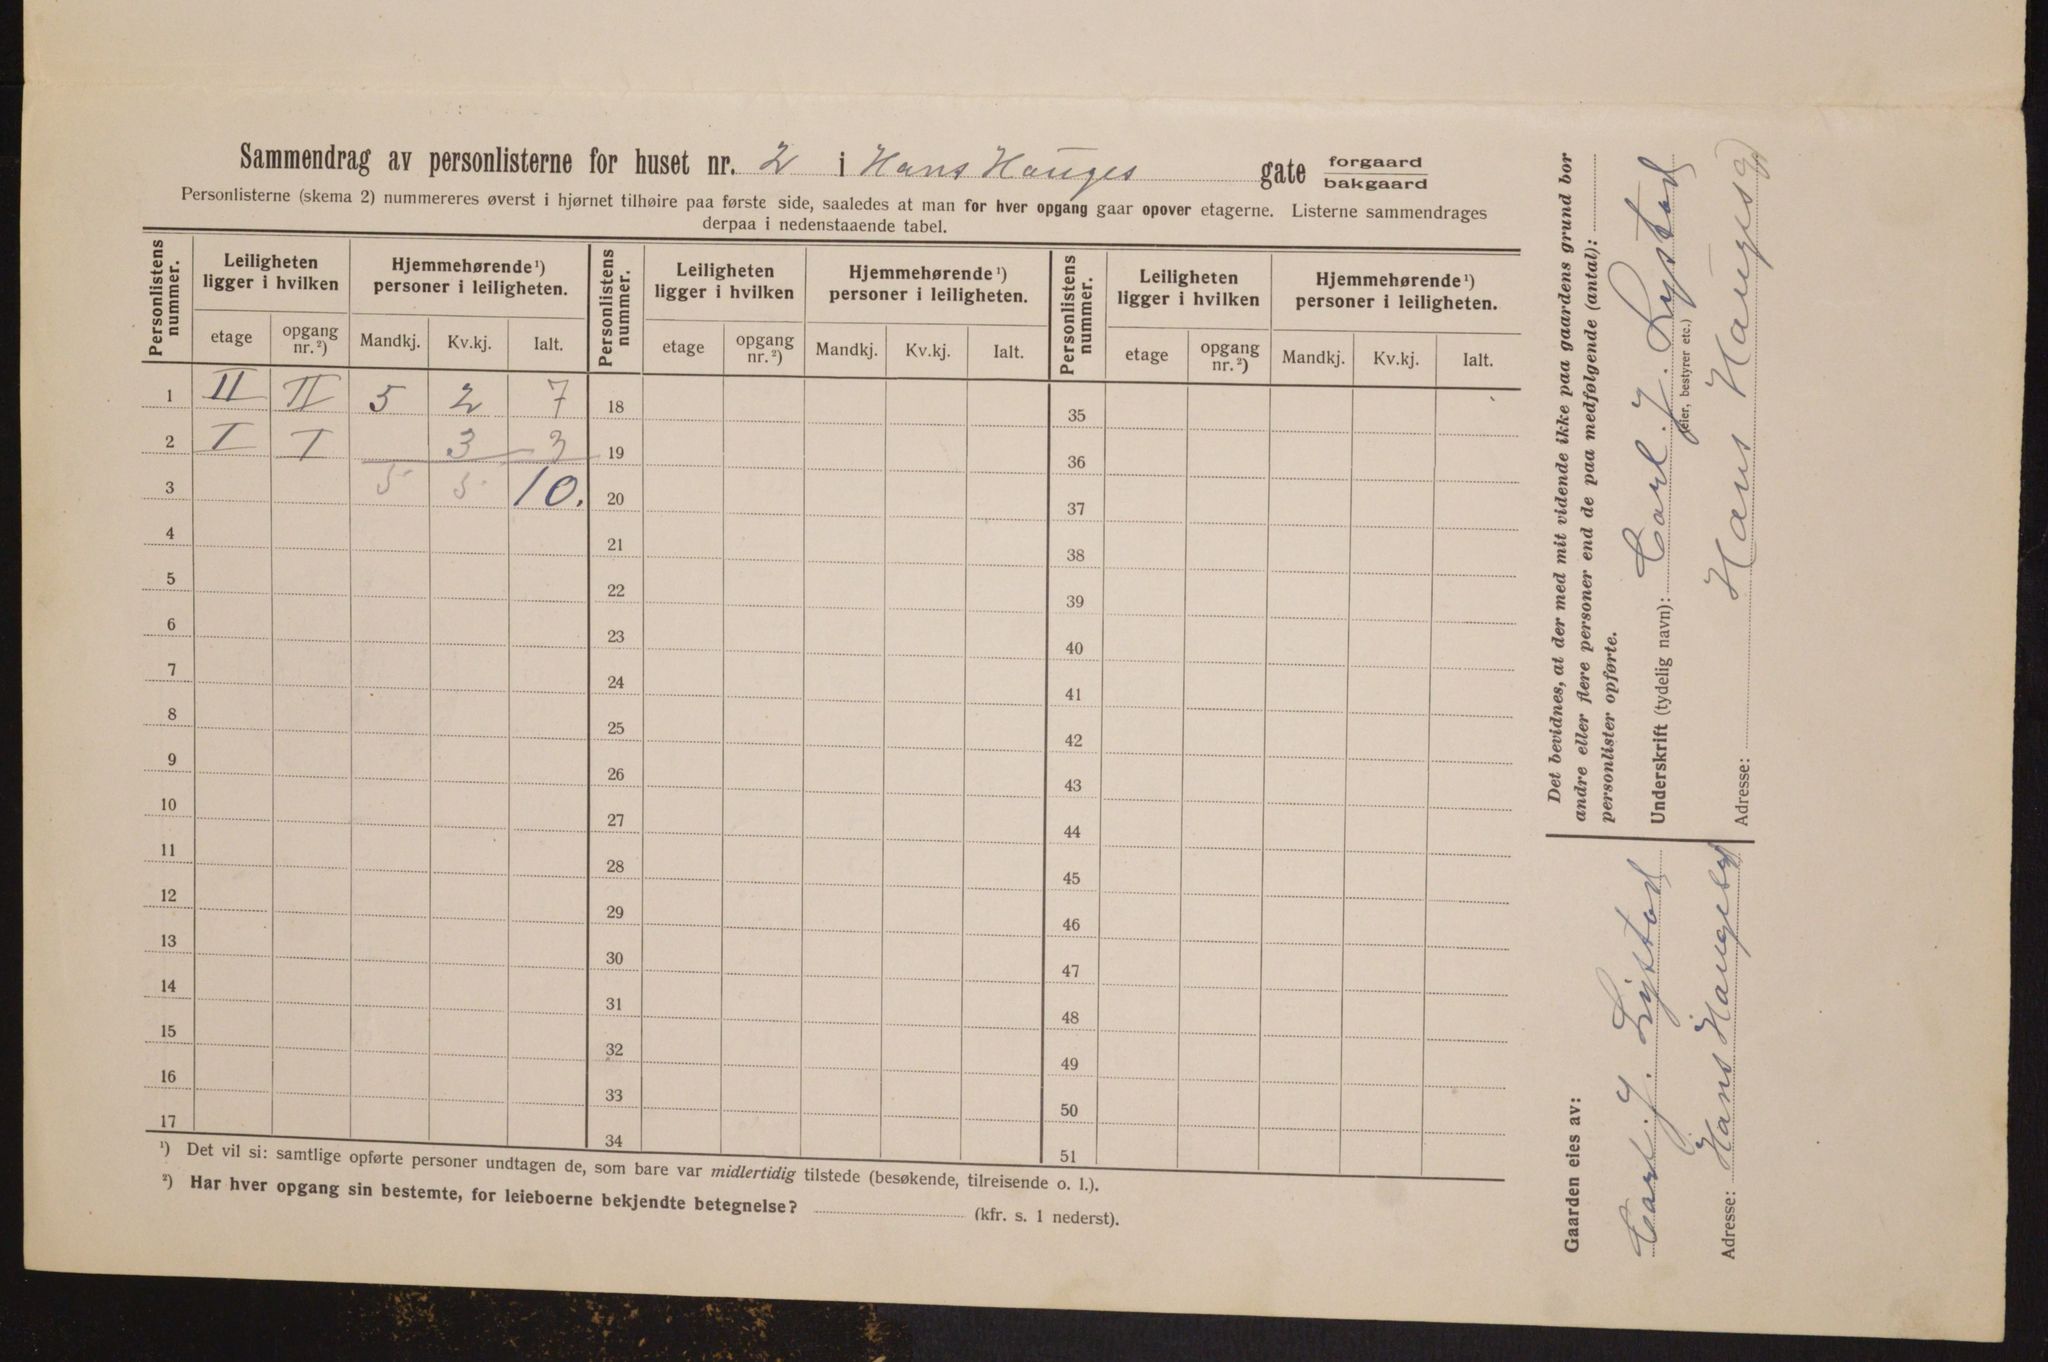 Sammendrag av personlisterne for huset nr. 2 i Hans Hauges gate forgaard bakgaard
Personlisterne (skema 2) nummereres øverst i hjørnet tilhøire paa første side, saaledes at man for hver opgang gaar opover etagerne. Listerne sammendrages
derpaa i nedenstaaende tabel.
Personlistens nummer.
Leiligheten ligger i hvilken
Hjemmehørende ¹) personer i leiligheten.
Personlistens nummer.
Leiligheten ligger i hvilken
Hjemmehørende ¹) personer i leiligheten.
Personlistens nummer.
Leiligheten ligger i hvilken
Hjemmehørende ¹) personer i leiligheten.
etage opgang nr. ²) Mandkj. Kv.kj. Ialt. etage opgang nr. ²) Mandkj. Kv.kj. Ialt. etage opgang nr. ²) Mandkj. Kv.kj. Ialt.
1 II II 5 2 7 18 35
2 I I 3 3 19 36
3 5 5 10. 20 37
4 21 38
5 22 39
6 23 40
7 24 41
8 25 42
9 26 43
10 27 44
11 28 45
12 29 46
13 30 47
14 31 48
15 32 49
16 33 50
17 34 51
¹) Det vil si: samtlige opførte personer undtagen de, som bare var midlertidig tilstede (besøkende, tilreisende o. l.).
²) Har hver opgang sin bestemte, for leieboerne bekjendte betegnelse? (kfr. s. 1 nederst).
Det bevidnes, at der med mit vidende ikke paa gaardens grund bor
andre eller flere personer end de paa medfølgende (antal):
personlister opførte.
Underskrift (tydelig navn): Carl. J. Lystad
(eier, bestyrer etc.)
Adresse: Hans Haugesg
Gaarden eies av:
Carl. J. Lystad
Adresse: Hans Haugesg